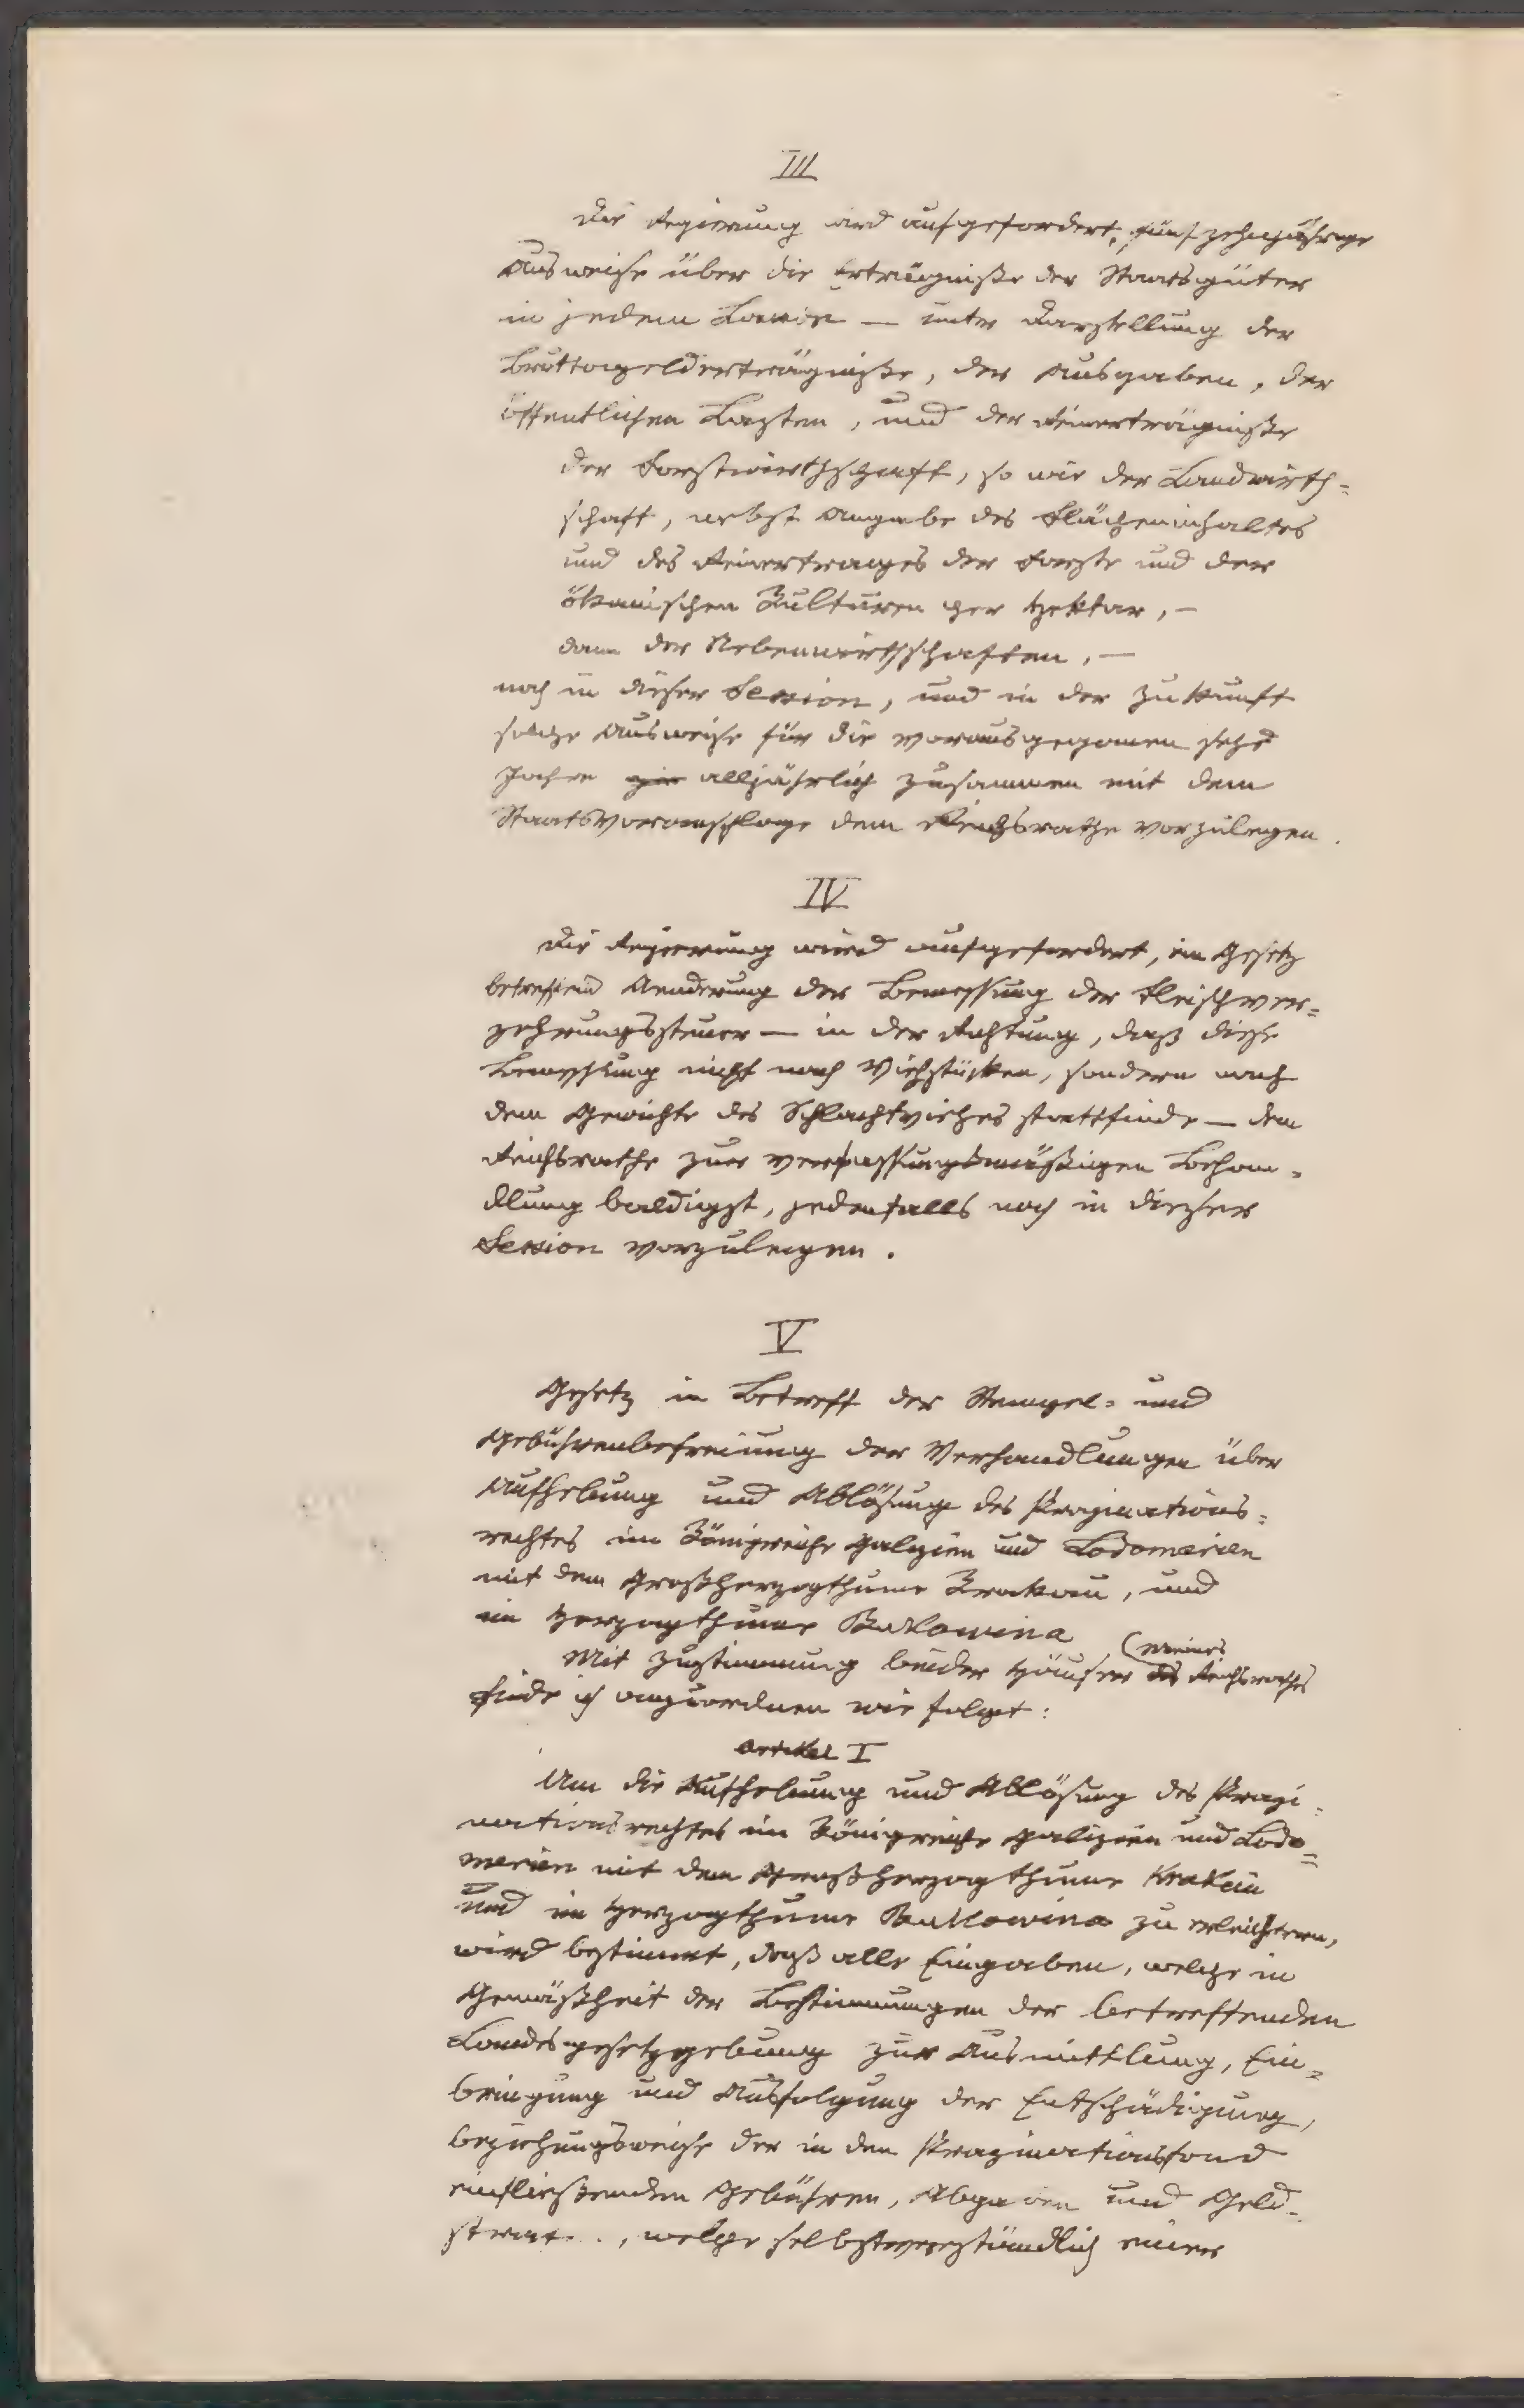 III
Die Regierung wird aufgefordert, fünfzehnjährige
Ausweise über die Erträgniße der Staatsgüter
in jedem Lande — unter Darstellung der
Bruttogelderträgniße, der Ausgaben, der
öffentlichen Lasten, und der Reinerträgniße
der Forstwirthschaft, so wie der Landwirth=
schaft, nebst Angabe des Flächeninhaltes
und des Reinertrages der Forste und der
ökonischen Kulturen per Hektar, —
dann der Nebenwirthschaften, —
noch in dieser Session, und in der Zukunft
solche Ausweise für die vorausgegangenen sechs
Jahre alljährlich zusammen mit dem
Staatsvoranschlage dem Reichsrathe vorzulegen.
IV
Die Regierung wird aufgefordert, ein Gesetz
betreffend Aenderung der Bemessung der Fleischver=
zehrungssteuer — in der Richtung, daß diese
Bemessung nicht nach Viehstücken, sondern nach
dem Gewichte des Schlachtviehes stattfinde — dem
Reichsrathe zur verfassungsmäßigen Behan=
dlung baldigst, jedenfalls noch in dieser
Session vorzulegen.
V
Gesetz in Betreff der Stempel= und
Gebührenbefreiung der Verhandlungen über
Aufhebung und Ablösung des Propinations=
rechtes im Königreiche Galizien und Lodomerien
mit dem Großherzogthume Krakau, und
im Herzogthume Bukowina
Mit Zustimmung beider Häuser des (meines Reichsrathes
finde ich anzuordnen wie folgt:
Artikel I
Um die Aufhebung und Ablösung des Propi=
nationsrechtes im Königreiche Galizien und Lodo=
merien mit dem Großherzogthume Krakau
und im Herzogthume Bukowina zu erleichtern,
wird bestimmt, daß alle Eingaben, welche in
Gemäßheit der Bestimmungen der betreffenden
Landesgesetzgebung zur Ausmittlung, Ein=
bringung und Ausfolgung der Entschädigung,
beziehungsweise der in den Propinationsfond
einfließenden Gebühren, Abgaben und Geld=
welche selbstverständlich einer